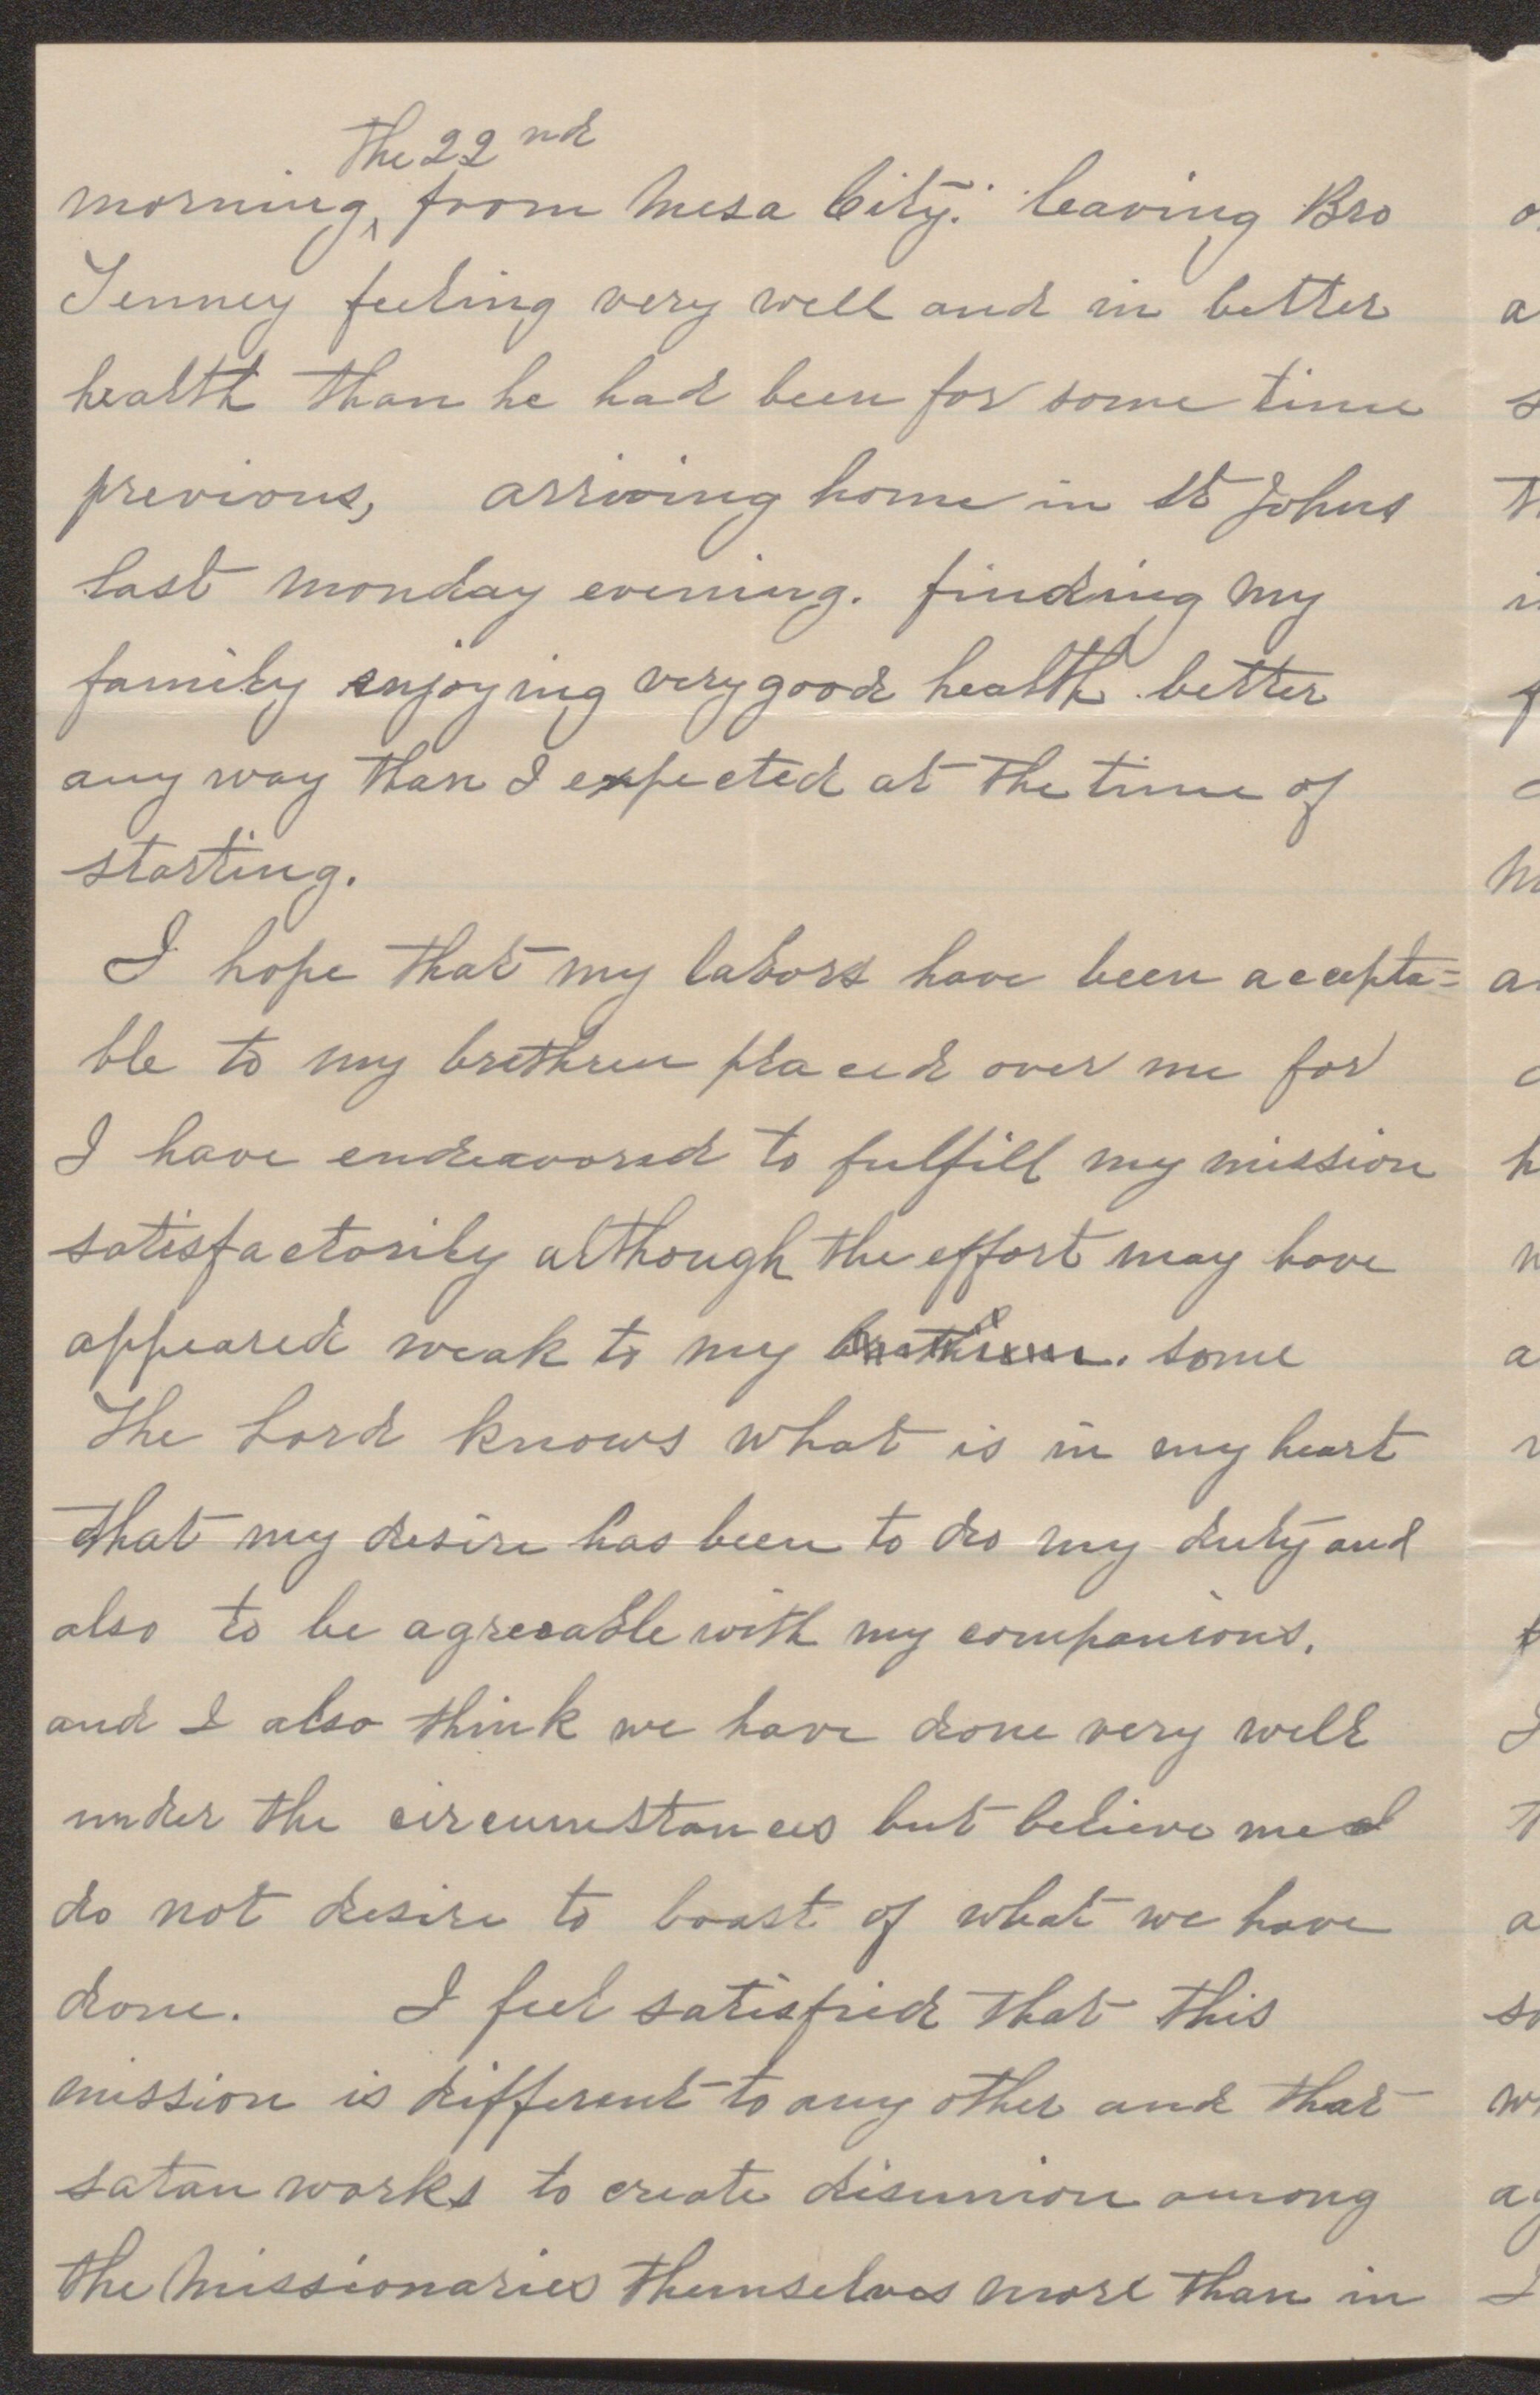 the 22nd
morning, from Mesa City. leaving Bro
Tenney feeling very well and in better
health than he had been for some time
previous, arriving home in St Johns
last Monday evening. finding my
family enjoying very good health better
any way than I expected at the time of
starting.
I hope that my labors have been accepta=
ble to my brethren placed over me for
I have endeavored to fulfill my mission
satisfactorily although the effort may have
appeared weak to my brethren. some
The Lord knows what is in my heart
that my desire has been to do my duty and
also to be agreeable with my companions.
and I also think we have done very well
under the circumstances but believe me I
do not desire to boast of what we have
done. I feel satisfied that this
mission is different to any other and that
satan works to create disunion among
the Missionaries themselves more than in